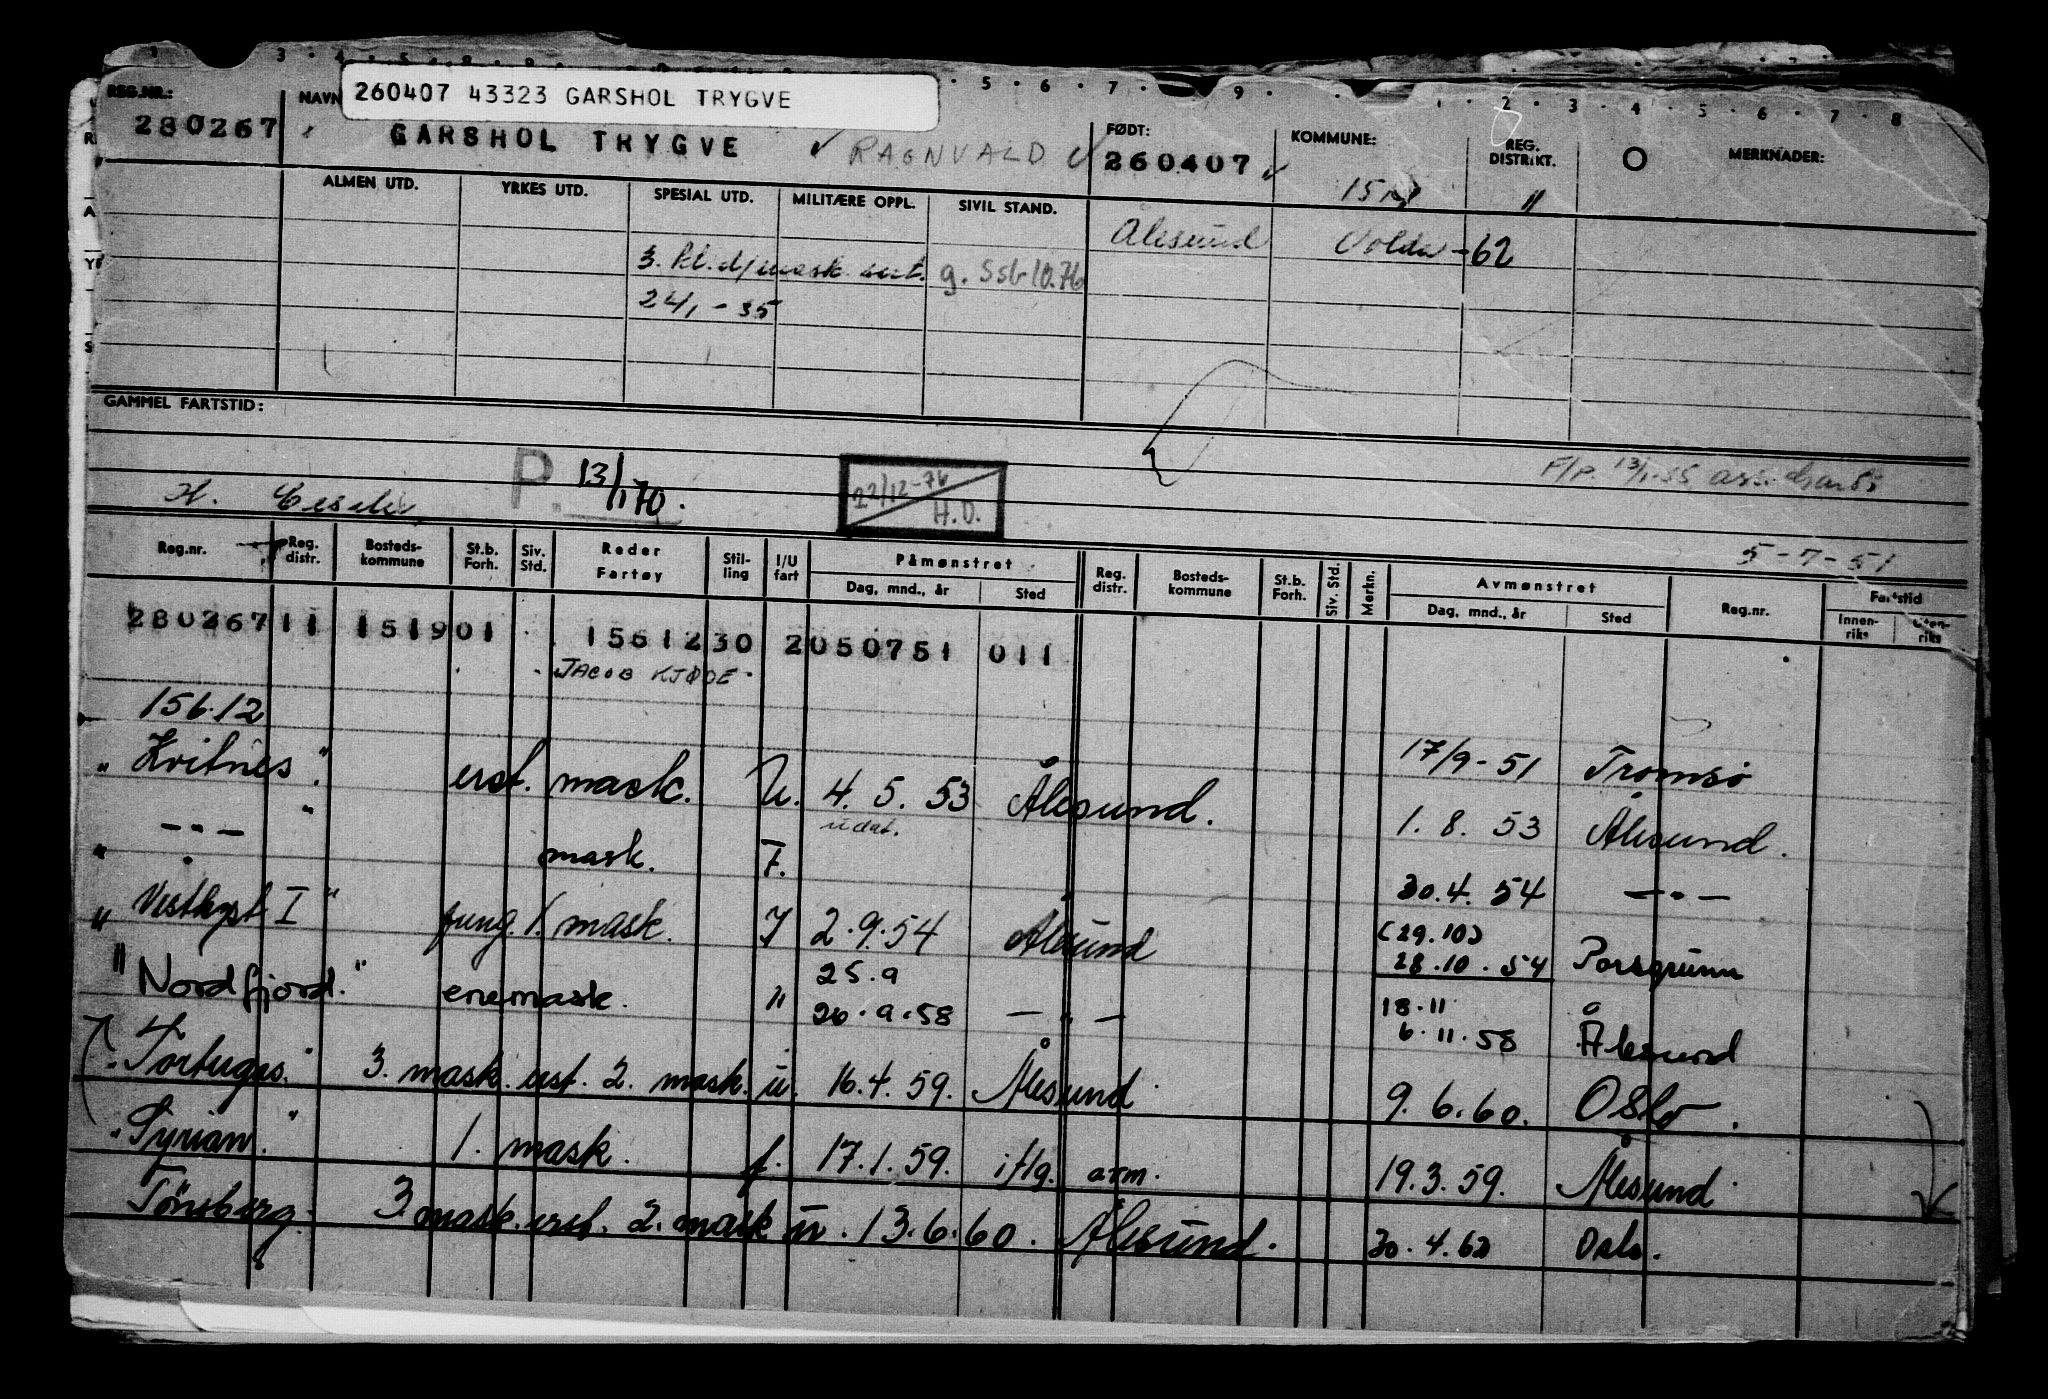 260407 43323 GARSHOL TRYGVE
REG.NR.: NAVN FØDT: KOMMUNE: REG. DISTRIKT. O MERKNADER:
280267 GARSHOL TRYGVE RAGNVALD 260407
ALMEN UTD. YRKES UTD. SPESIAL UTD. MILITÆRE OPPL. SIVIL STAND. "
Ålesund Volda -62
3. kl. d/mask. sert. g. Ssb 10.76
24/1 - 35
GAMMEL FARTSTID:
F/p. 13/1-55
P. 13/1 70. 22/12-76 H.O.
5-7-51
Reg.nr. Reg. distr. Bosteds- kommune St.b. Forh. Siv. Std. Reder Fartøy Stil- ling I/U fart Påmønstret Dag, mnd., år Sted Reg. distr. Bosteds- kommune St.b. Forh. Siv. Std. Merkn. Avmønstret Dag, mnd., år Sted Reg.nr. Fartstid Innen- riks Uten- riks
280267 11 151901 1561230 2050751 011
JACOB KJØDE
156.12 17/9-51 Tromsø
"Kvitnes" erst. mask. U. 4. 5. 53 Ålesund. 1. 8. 53 Ålesund.
udat.
" — " — " mask. F. 30.4. 54 — " —
"Vestkyst I" fung. 1. mask. I 2.9.54 Ålesund (29.10) 28.10.54 Porsgrunn
"Nordfjord." enemask. " 25.9 26.9.58 — " — 18.11 6.11.58 Ålesund
"Tortugas." 3. mask. erst. 2. mask. u. 16.4.59. Ålesund. 9.6.60. Oslo.
"Tyrian." 1. mask. f. 17.1.59. iflg. arm. 19.3.59. Ålesund
Tönsberg. 3 mask. erst. 2. mask u. 13.6.60. Ålesund. 30.4.62 Oslo.